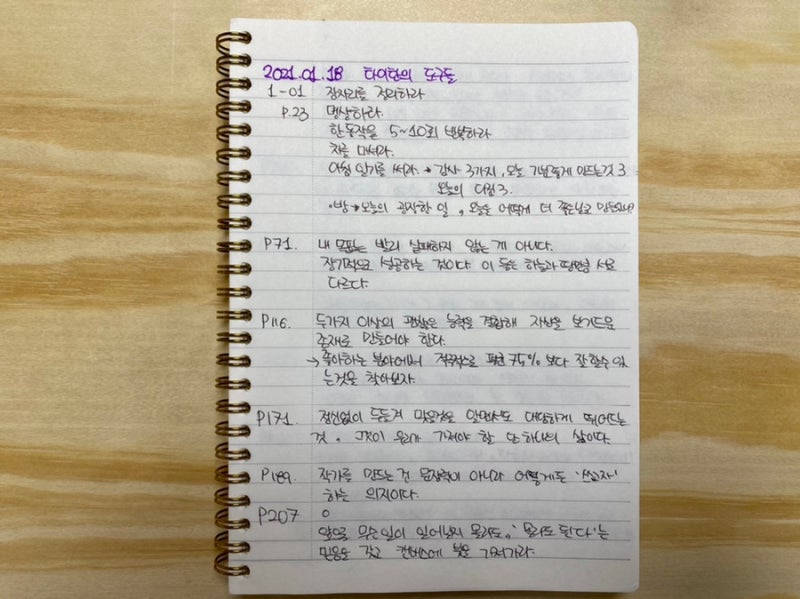 2021.01.18 타이탄의 도구들
1-01 잠자리를 정리하라
P.23 명상하라.
한 동작을 5~10회 반복하라
차를 마셔라.
아침 일기를 써라. → 감사 3가지, 오늘 기분좋게 만드는것 3
오늘의 다짐 3.
·밤 → 오늘의 굉장한 일, 오늘을 어떻게 더
P71. 내 목표는 빨리 실패하지 않는 게 아니다.
장기적으로 성공하는 것이다. 이 둘은 하늘과 땅만큼 서로
다르다.
P116. 두가지 이상의 괜찮은 능력을 결합해 자신을 보기드문
존재로 만들어야 한다.
→ 좋아하는 분야에서 적극적으로 평균 75% 보다 잘 할수 있
는것을 찾아보자.
P171. 정신없이 두들겨 맞을것을 알면서도 대담하게 뛰어드는
것. 그것이 우리가 가져야 할 단 하나의 삶이다.
P189. 작가를 만드는 건 문장력이 아니라 어떻게든 '쓰고자'
하는 의지이다.
P207
앞으로 무슨일이 일어날지 몰라도, '몰라도 된다'는
믿음을 갖고 캔버스에 붓을 가져가라.